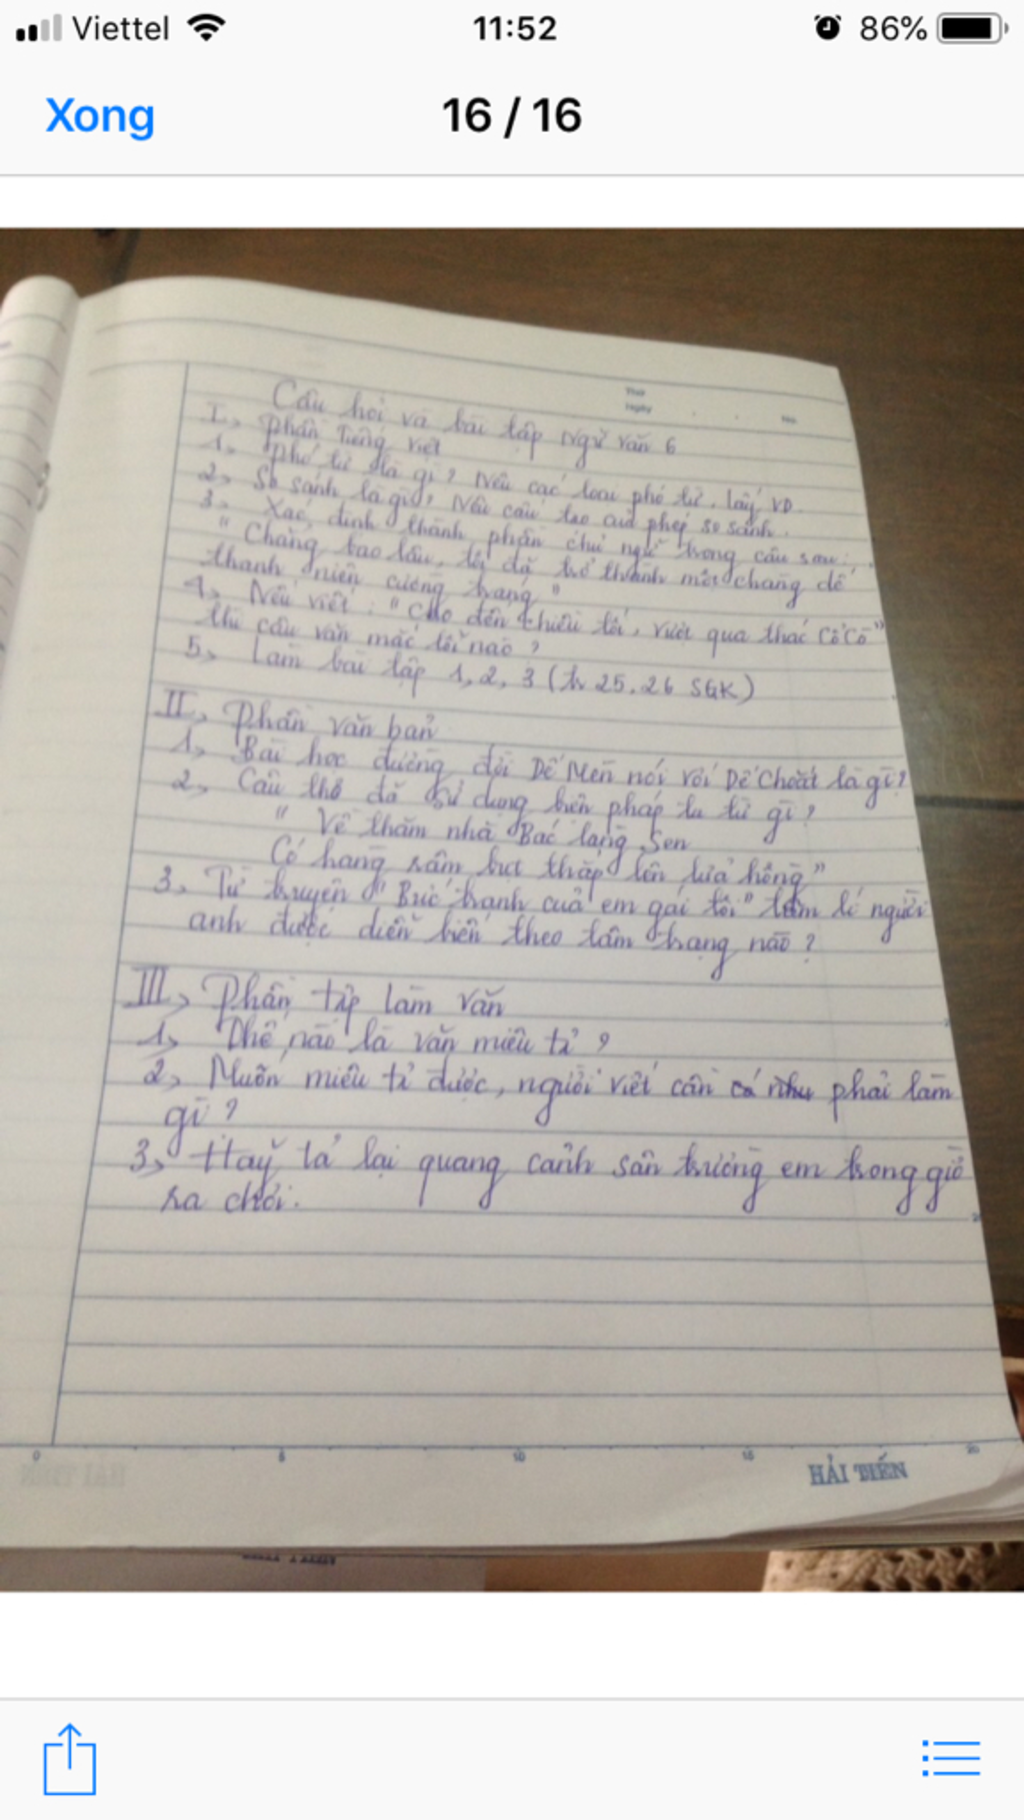 Viettel
11:52
86%
Xong
16 / 16
Thứ
Ngày
No
Câu hỏi và bài tập Ngữ văn 6
I, Phần Tiếng việt
1, Phó từ là gì? Nêu các loại phó từ, lấy VD.
2, So sánh là gì? Nêu cấu tạo của phép so sánh.
3, Xác định thành phần chủ ngữ trong câu sau:
" Chẳng bao lâu, tôi đã trở thành một chàng dế
thanh niên cường tráng"
4, Nếu viết: " Cho đến chiều tối, vượt qua thác Cổ Cò"
thì câu văn mắc lỗi nào?
5, Làm bài tập 1, 2, 3 (tr 25.26 SGK)
II, Phần văn bản
1, Bài học đường đời Dế Mèn nói với Dế Choắt là gì?
2, Câu thơ đã sử dụng biện pháp tu từ gì?
" Về thăm nhà Bác làng Sen
Có hàng râm bụt thắp lên lửa hồng"
3, Từ truyện " Bức tranh của em gái tôi" tâm lí người
anh được diễn biến theo tâm trạng nào?
III, Phần tập làm văn
1, Thế nào là văn miêu tả?
2, Muốn miêu tả được, người viết cần phải làm
gì?
3, Hãy tả lại quang cảnh sân trường em trong giờ
ra chơi.
0 5 10 15 20
HẢI TIẾN